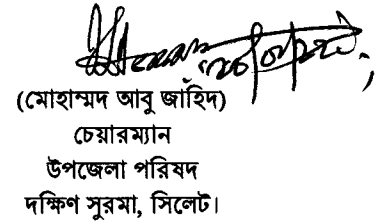 (মোহাম্মদ আবু জাহিদ)
চেয়ারম্যান
উপজেলা পরিষদ
দক্ষিণ সুরমা, সিলেট।